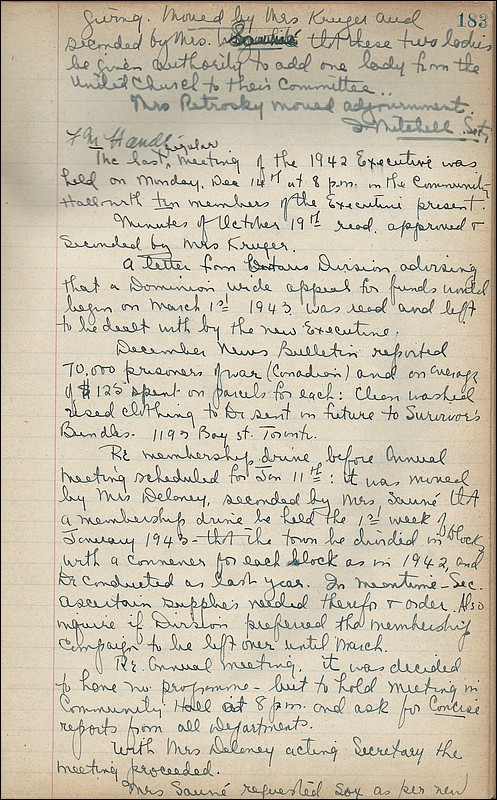 183
giving. Moved by Mrs Kruger and
seconded by Mrs. that these two ladies
be given authority to add one lady from the
United Church to their Committee..
Mrs Petrosky moved adjournment.
S. Mitchell. Sety
F M Handl
regular
The last meeting of the 1942 Executive was
held on Monday, Dec 14th at 8 p.m. in the Community
Hall with ten members of the Executive present.
Minutes of October 19th read, approved &
seconded by Mrs Kruger.
A letter from Ontario Division, advising
that a Dominion wide appeal for funds would
begin on March 1st 1943 was read and left
to be dealt with by the new Executive.
December News Bulletin reported
70,000 prisoners of war (Canadian) and on average
of $125 spent on parcels for each: Clean washed
used clothing to be sent in future to Survivor's
Bundles. 1193 Bay St. Toronto.
Re membership drive before Annual
meeting scheduled for Jan 11th: it was moved
by Mrs Delaney, seconded by Mrs Sauné that
a membership drive be held the 1st week of
January 1943 - that the town be divided in blocks
with a convener for each block as in 1942, and
be conducted as last year. In meantime - Sec.
ascertain supplies needed therefor & order. Also
inquire if Division preferred the membership
campaign to be left over until March.
Re. Annual meeting. it was decided
to have no programme - but to hold meeting in
Community Hall at 8 p.m. and ask for Concise
reports from all departments.
With Mrs Delaney acting Secretary the
meeting proceeded.
Mrs Sauné requested sox as per new